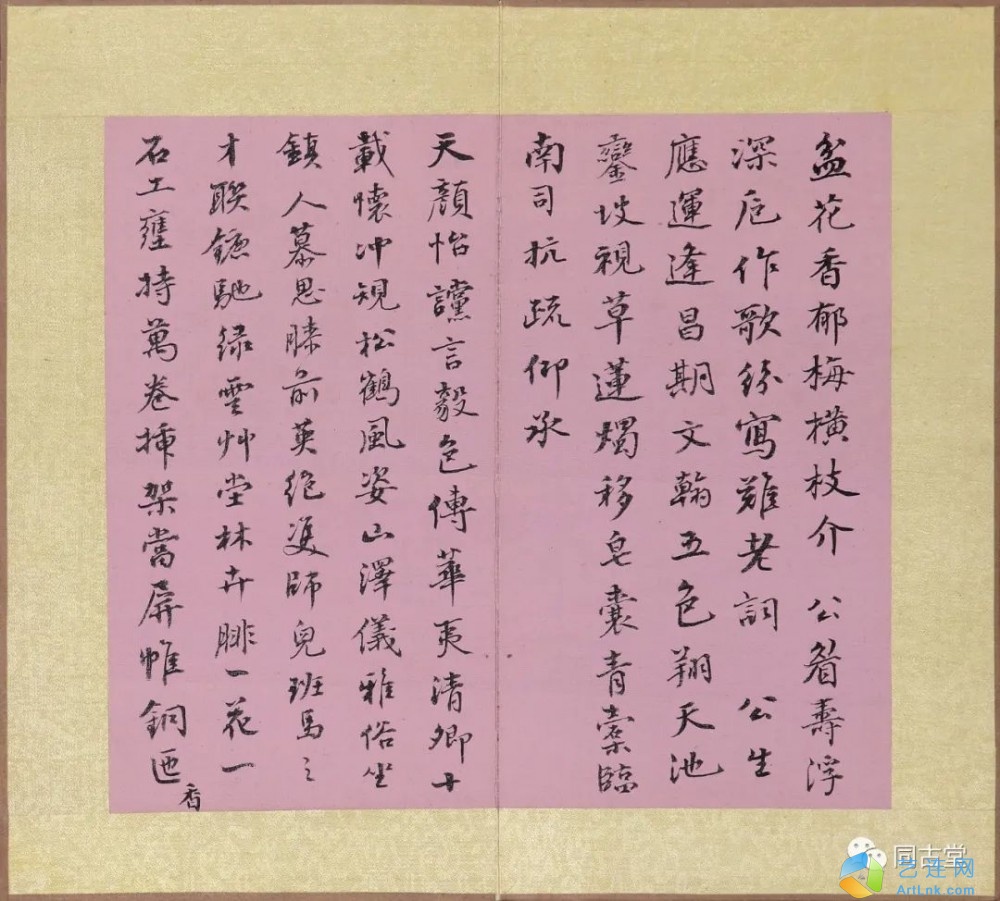 盆花香郁梅橫枝介公眉壽浮
深卮作歌終寫難老詞公生
應運逢昌期文翰五色翔天池
鑾坡視草蓮燭移皂囊青橐臨
南司抗疏仰承
天顏怡讜言毅色傳華夷清卿十
載懷沖規松鶴風姿山澤儀雅俗坐
鎮人慕思膝前英絕雙師兒班馬之
才聯鑣馳綠雪艸堂林卉腓一花一
石土壅持萬卷插架當屏帷銅匜
香
同古堂
艺连网
ArtLnk.com